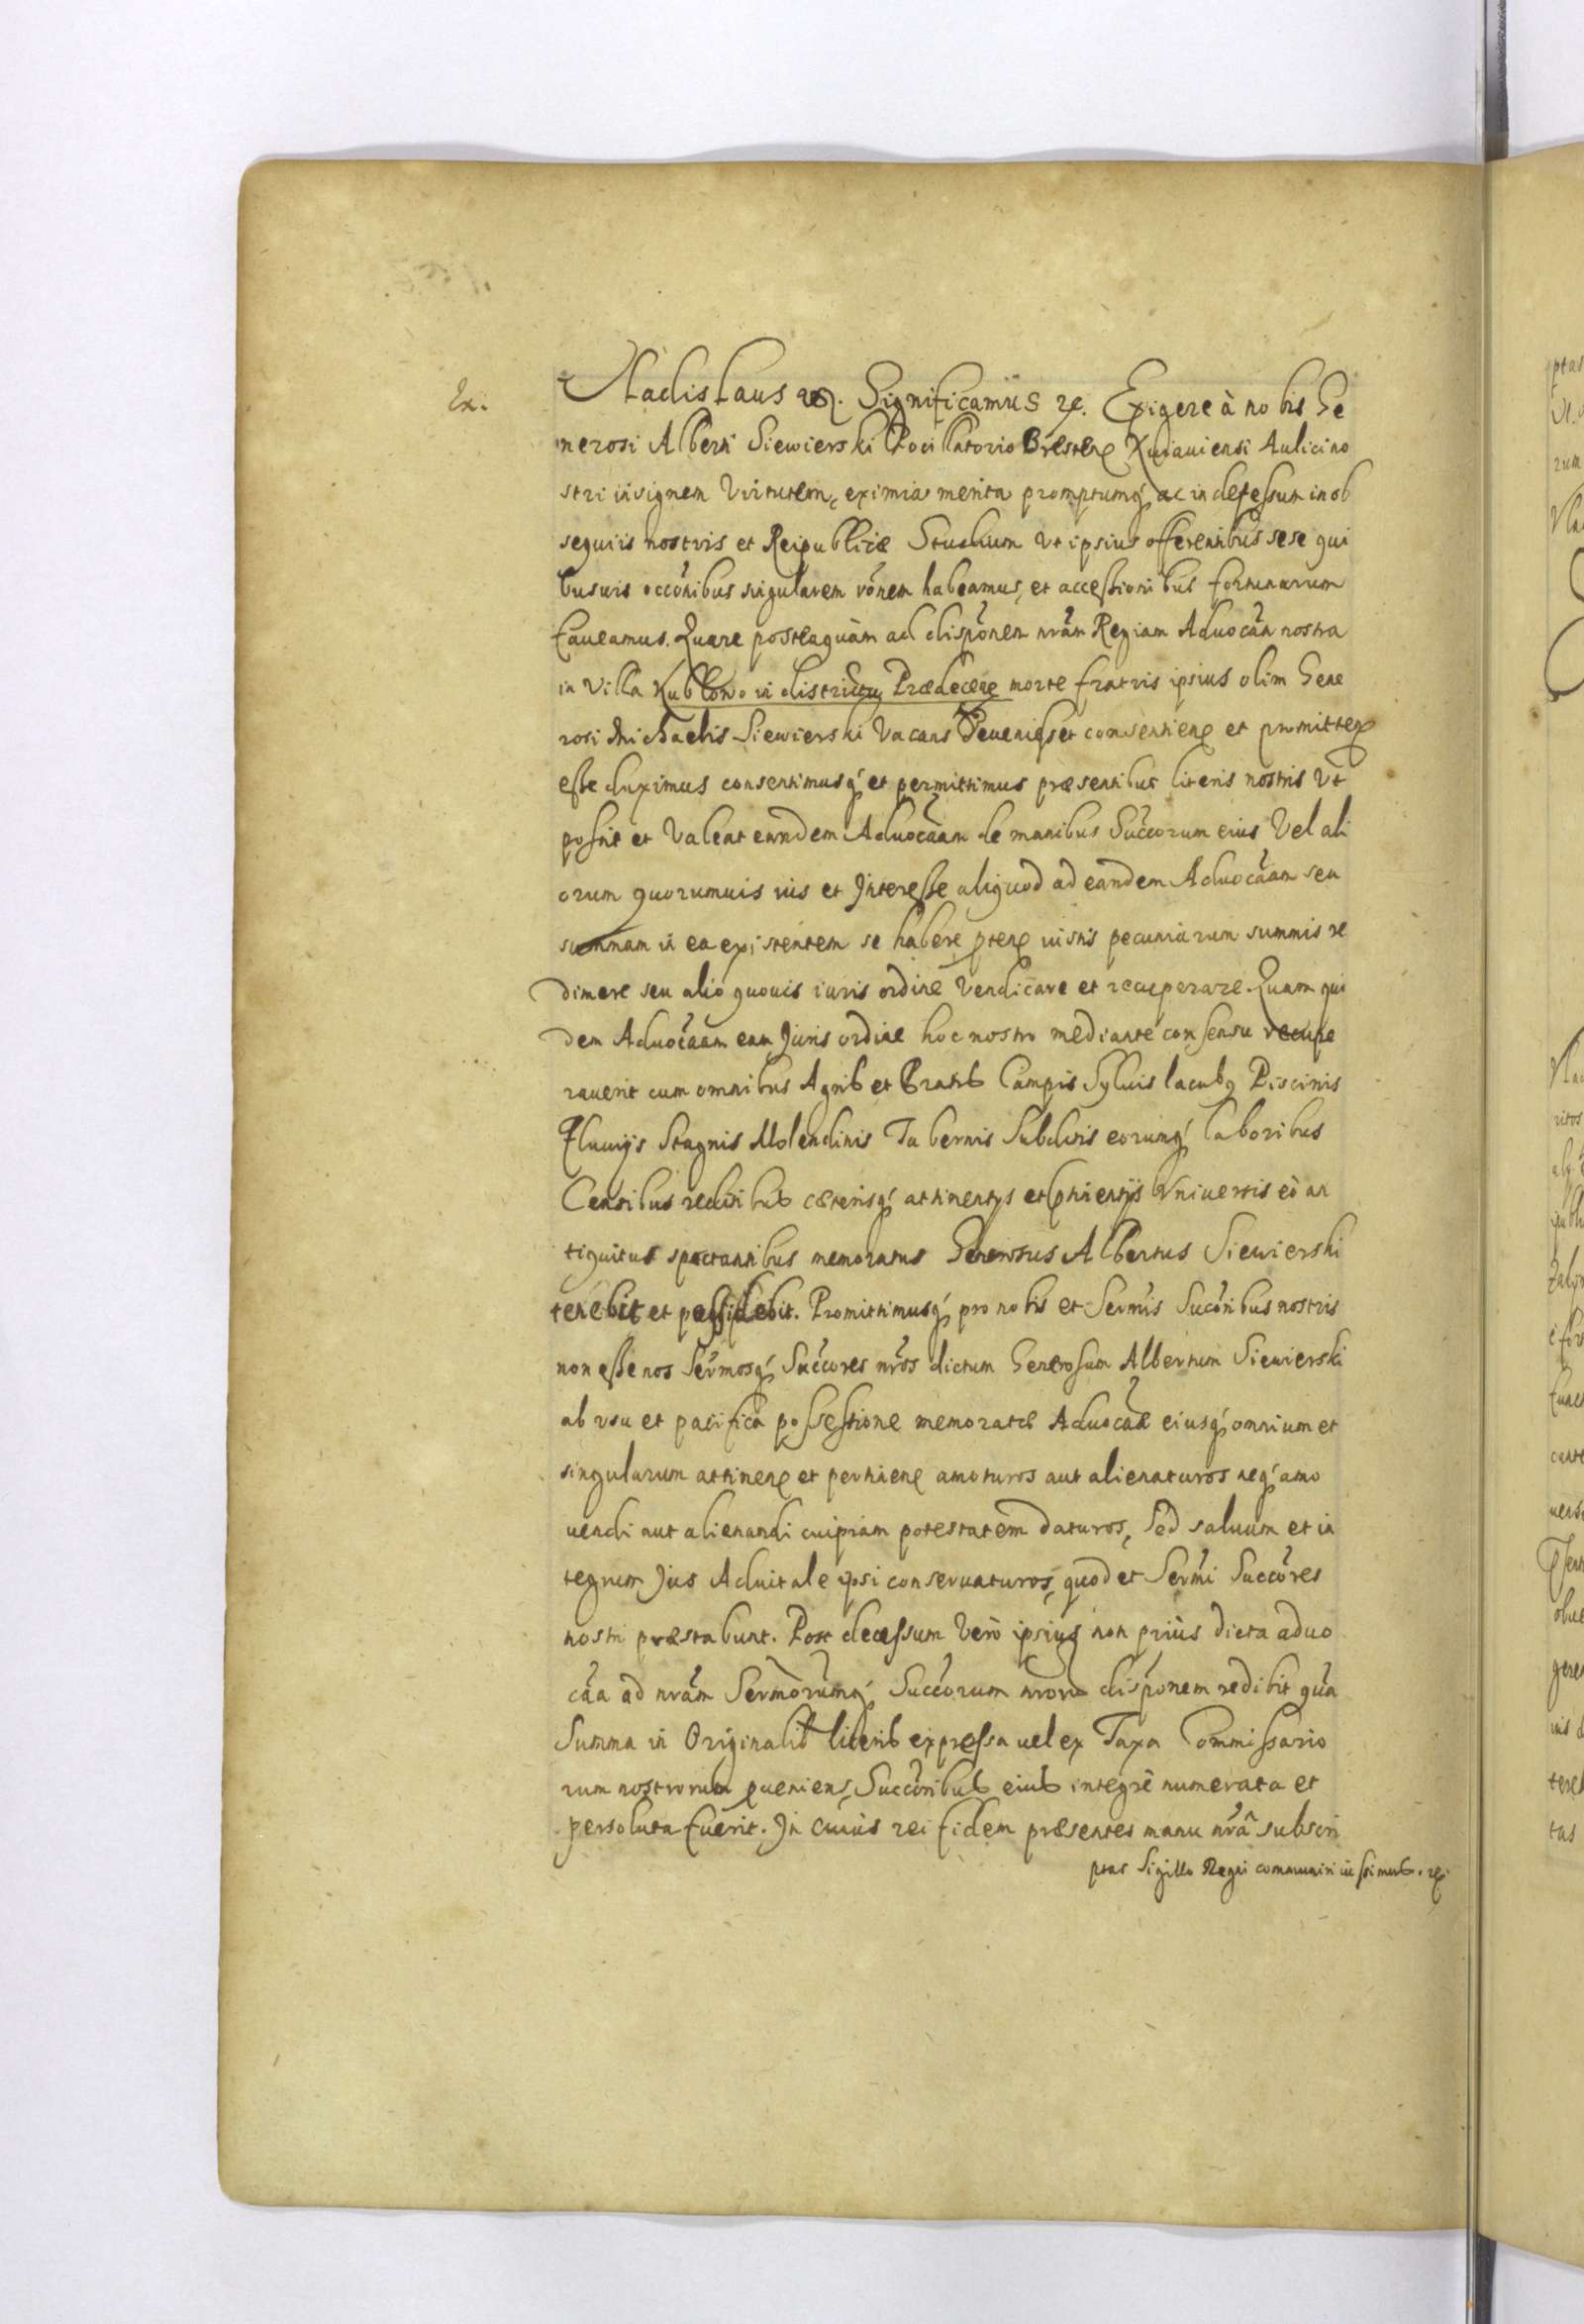 Ex.
Vladislaus etc. Significamus etc. Exigere à nobis Ge
nerosi Alberti Siewierski Pocillatoris Bresteñ Kuiauiensi Aulici no
stri insignem Virtutem, eximia merita promptumq́ ac indefessum in ob
sequiis nostris et Reipublicæ Studium Vt ipsius offerentibus sese qui
busuis occõnibus singularem rõnem habeamus, et accessionibus fortunarum
faueamus. Quare posteaquàm ad dispõnem nrãm Regiam Aduocãa nostra
in Villa Kublowo in districtu Prædeceñ morte fratris ipsius olim Gene
rosi Michaelis Siewierski Vacans deuenisset consentieñ et permitteñ
esse duximus consentimusq́ et permittimus præsentibus literis nostris Vt
possit et Valeat eandem Aduocãam de manibus Succorum eius Vel ali
orum quorumuis ius et Interesse aliquod ad eandem Aduocãam seu
summam in ea existentem se habere pteñ iustis pecuniarum summis re
dimere seu alio quouis iuris ordine Vendicare et recuperare. Quam qui
dem Aduocãam eam Juris ordine hoc nostro mediante consensu recupe
rauerit cum omnibus Agris et Pratis Campis Syluis lacubq Piscinis
Fluuijs Stagnis Molendinis Tabernis Subditis eorumq́ laboribus
Censibus reditibus cæterisq́ attinentijs et ptinentijs Vniuersis eò an
tiquitus spectantibus memoratus Generosus Albertus Siewierski
tenebit et possidebit. Promittimusq́ pro nobis et Sermis Succoribus nostris
non esse nos Sermosq́ Succores nros dictum Generosum Albertum Siewierski
ab vsu et pacifica possessione memoratæ Aduocãæ eiusq́ omnium et
singularum attineñ et pertineñ amoturos aut alienaturos neq́ amo
uendi aut alienandi cuipiam potestatem daturos, Sed saluum et in
tegrum Jus Aduitale ipsi conseruaturos, quod et Sermi Succores
nostri præstabunt. Post decessum Verò ipsius non priùs dicta aduo
cãa ad nrãm Sermorumq́ Succorum nrorum dispõnem redibit quãm
Summa in Originalib literis expressa uel ex Taxa Commissario
rum nostrorum pueniens, Succoribus eius integrè numerata et
persoluta fuerit. In cuius rei fidem præsentes manu nrã subscri
ptas Sigillo Regni communiri iussimus. etc.